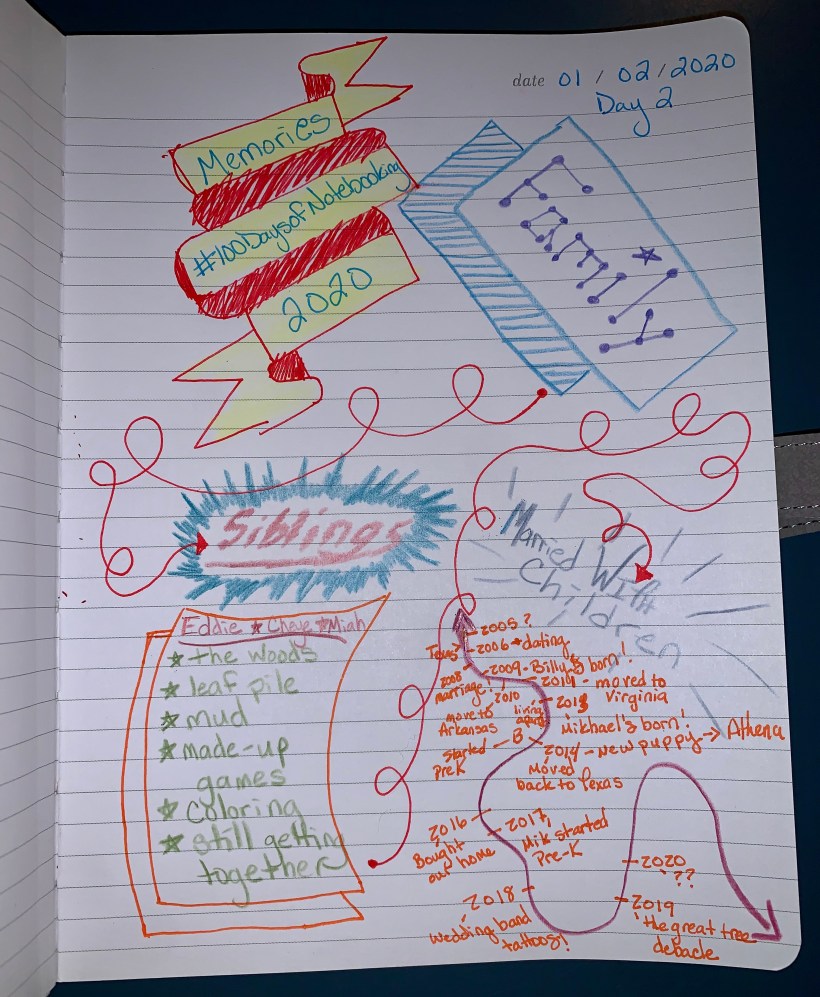 date 01 / 02 / 2020
Day 2
Memories
#100DaysofNotebooking
2020
Family
Siblings
Married With
Children
Eddie ★ Chaye ★ Miah
★ the woods
★ leaf pile
★ mud
★ made-up
games
★ coloring
★ still getting
together
2005?
Texas?
2006 * dating
2008
marriage!
2009 - Billy's born!
2010
move to
Arkansas
living
apart
2011 - moved to
Virginia
2013
Mikhael's born!
B
started
PreK
2014 - New puppy → Athena
Moved
back to Texas
2016
Bought
our home
2017,
Mik started
Pre-K
2018
Wedding band
tattoos!
2019
the great tree
debacle
2020
??